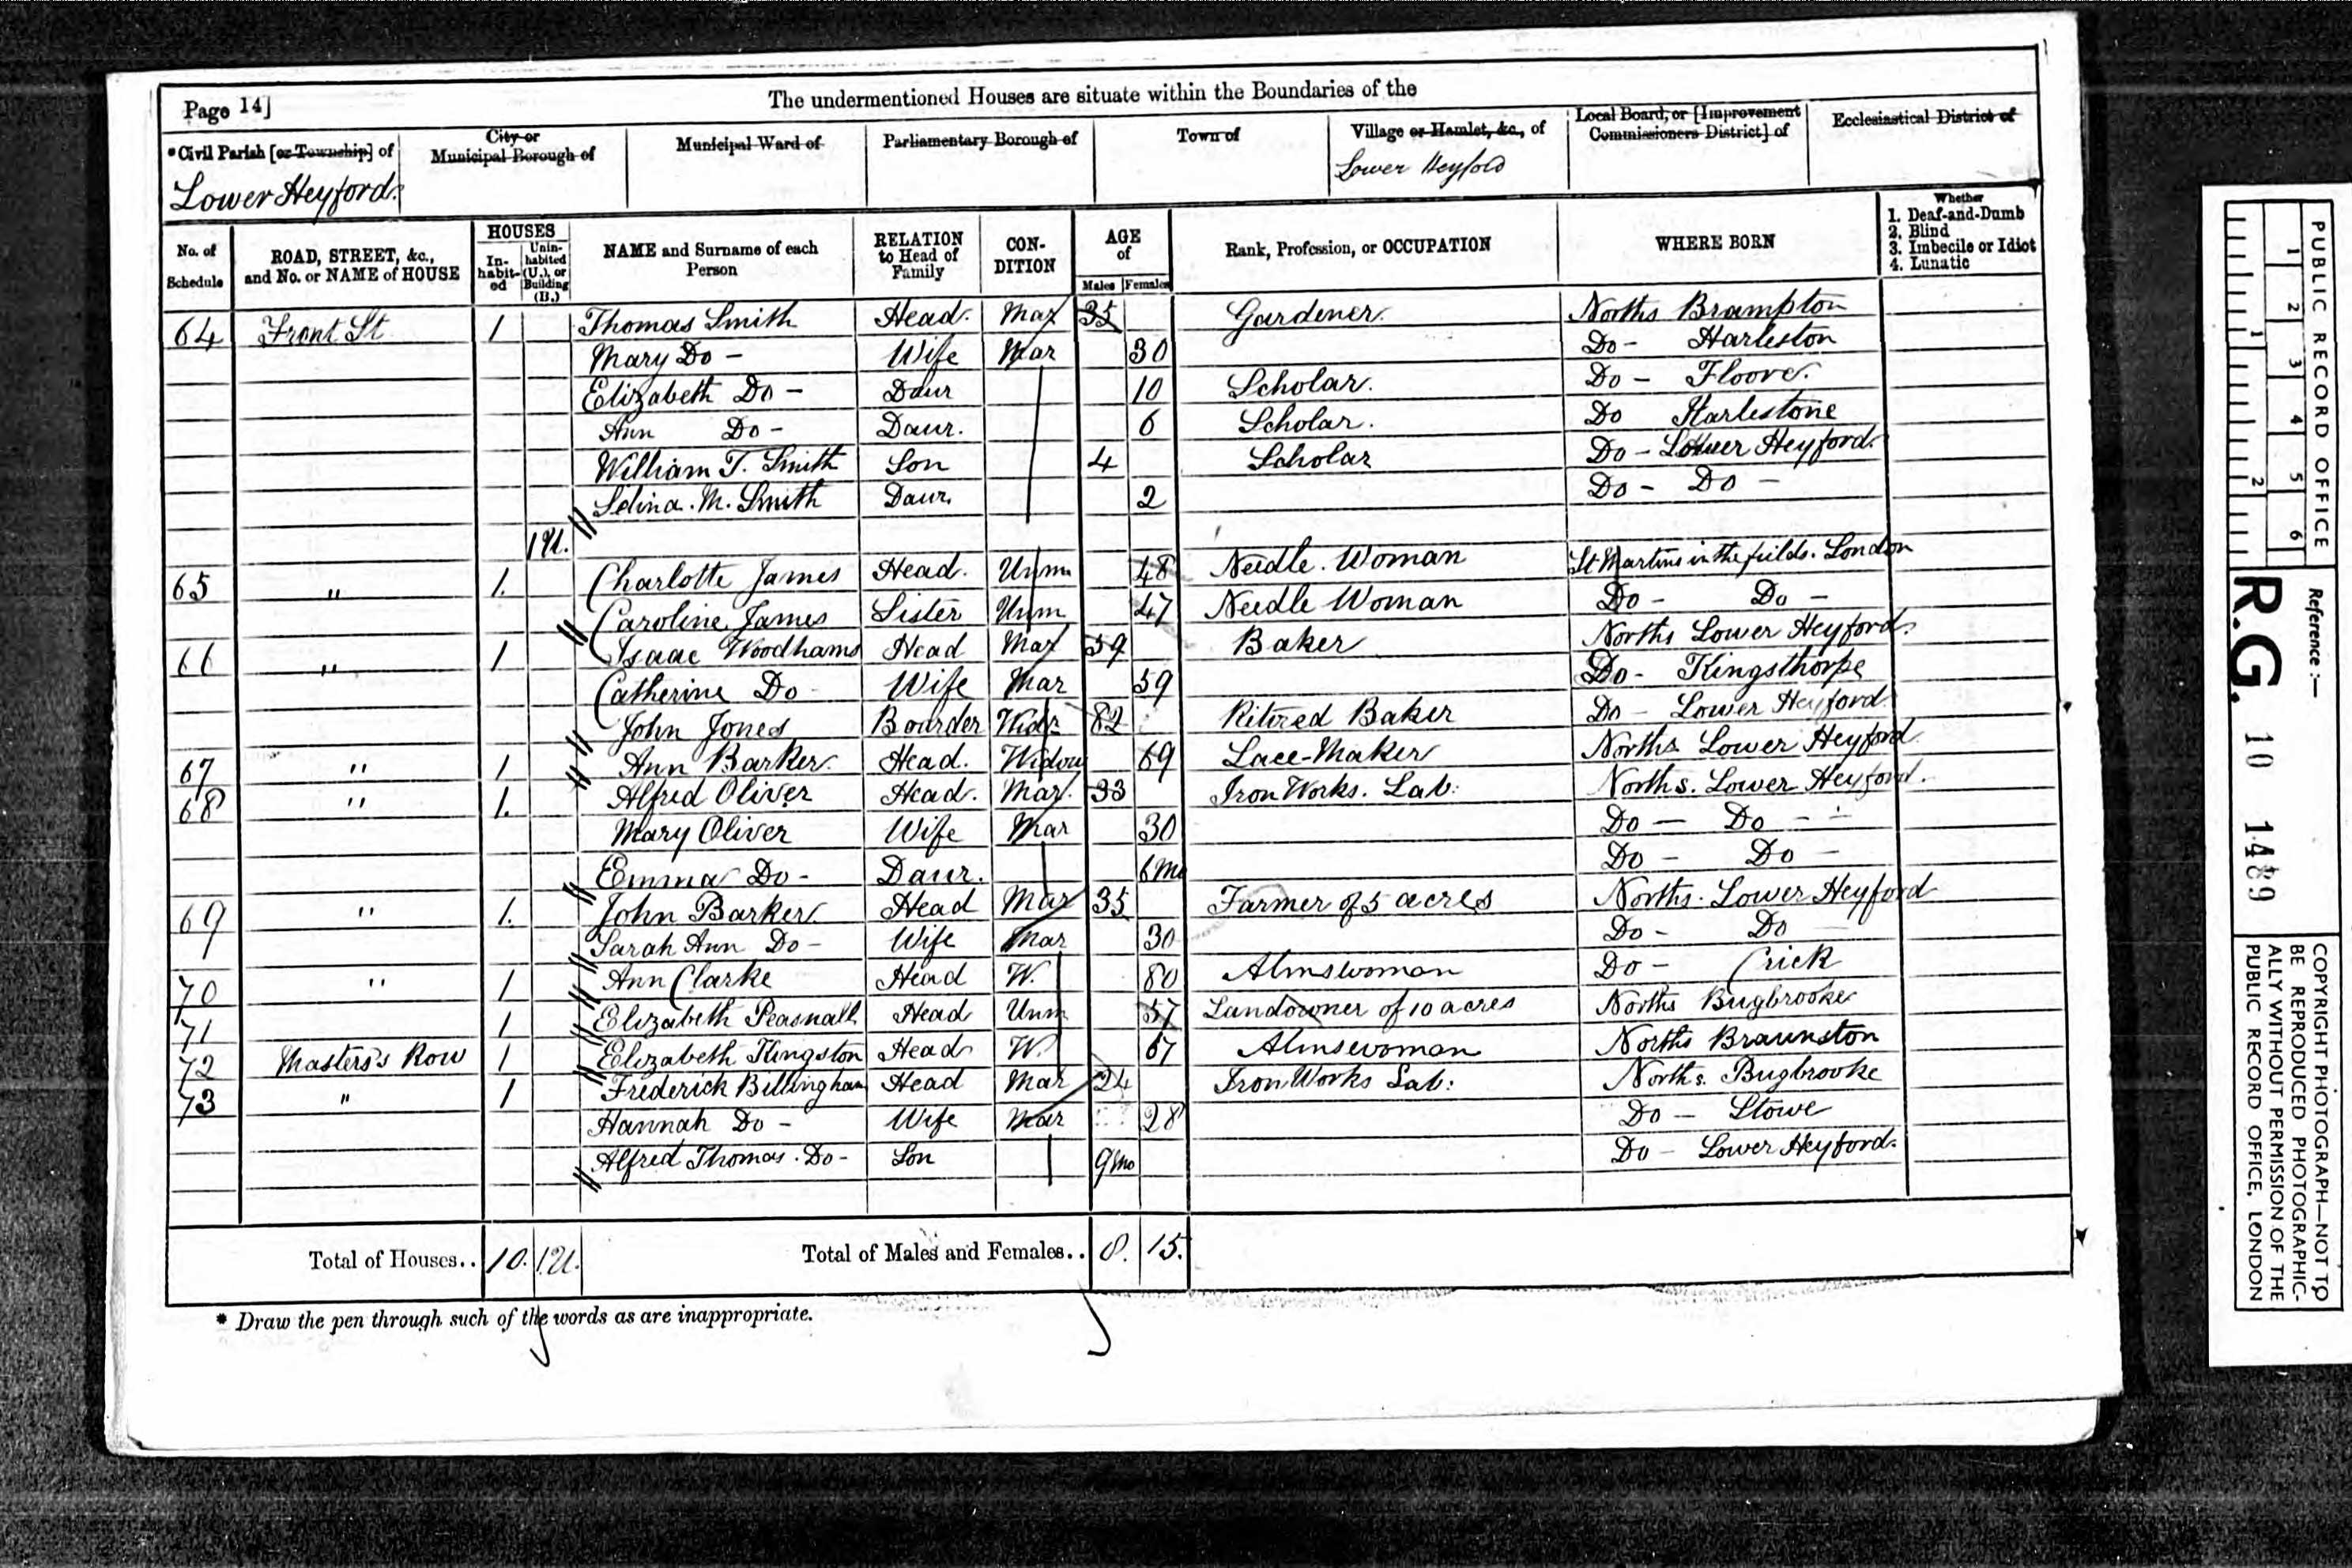 Page 14]
The undermentioned Houses are situate within the Boundaries of the
*Civil Parish [or Township] of
City or Municipal Borough of
Municipal Ward of
Parliamentary Borough of
Town of
Village or Hamlet, &c., of
Local Board, or [Improvement Commissioners District] of
Ecclesiastical District of
Lower Heyford.
Lower Heyford
No. of Schedule
ROAD, STREET, &c., and No. or NAME of HOUSE
HOUSES
In-habit-ed
Unin-habited (U.), or Building (B.)
NAME and Surname of each Person
RELATION to Head of Family
CON-DITION
AGE of
Males
Females
Rank, Profession, or OCCUPATION
WHERE BORN
Whether
1. Deaf-and-Dumb
2. Blind
3. Imbecile or Idiot
4. Lunatic
64 Front St 1 Thomas Smith Head. Mar 35 Gardener. Norths Brampton
Mary Do - Wife Mar 30 Do - Harleston
Elizabeth Do - Daur 10 Scholar. Do - Floore.
Ann Do - Daur. 6 Scholar. Do Harlestone
William T. Smith Son 4 Scholar Do - Lower Heyford.
Selina. M. Smith Daur. 2 Do - Do -
1U.
65 " 1. Charlotte James Head. Unm 48 Needle. Woman St Martins in the fields. London
Caroline James Sister Unm 47 Needle Woman Do - Do -
66 " 1 Isaac Woodhams Head Mar 59 Baker Norths Lower Heyford.
Catherine Do - Wife Mar 59 Do - Kingsthorpe
John Jones Bourder Widr 82 Ritired Baker Do - Lower Heyford
67 " 1 Ann Barker. Head. Widow 69 Lace-Maker Norths Lower Heyford.
68 " 1. Alfred Oliver Head. Mar. 33 Iron Works. Lab: Norths. Lower Heyford.
Mary Oliver Wife Mar 30 Do - Do - -
Emma Do - Daur. 6 mo Do - Do -
69 " 1. John Barker Head Mar 35 Farmer of 5 acres Norths. Lower Heyford
Sarah Ann Do - Wife Mar 30 Do - Do
70 " 1 Ann Clarke Head W. 80 Almswoman Do - Crick
71 1 Elizabeth Peasnall Head Unm 57 Landowner of 10 acres Norths Bugbrooke
72 Masters's Row 1 Elizabeth Kingston Head W. 67 Almswoman Norths Braunston
73 " 1 Frederick Billingham Head Mar 24 Iron Works Lab: Norths. Bugbrooke
Hannah Do - Wife Mar 28 Do - Stowe
Alfred Thomas. Do - Son 9 mo Do - Lower Heyford.
Total of Houses.. 10. 1U. Total of Males and Females.. 8. 15.
* Draw the pen through such of the words as are inappropriate.
PUBLIC RECORD OFFICE
1 2 3 4 5 6
1 2
Reference :—
R.G. 10 1489
COPYRIGHT PHOTOGRAPH—NOT TO
BE REPRODUCED PHOTOGRAPHIC-
ALLY WITHOUT PERMISSION OF THE
PUBLIC RECORD OFFICE, LONDON